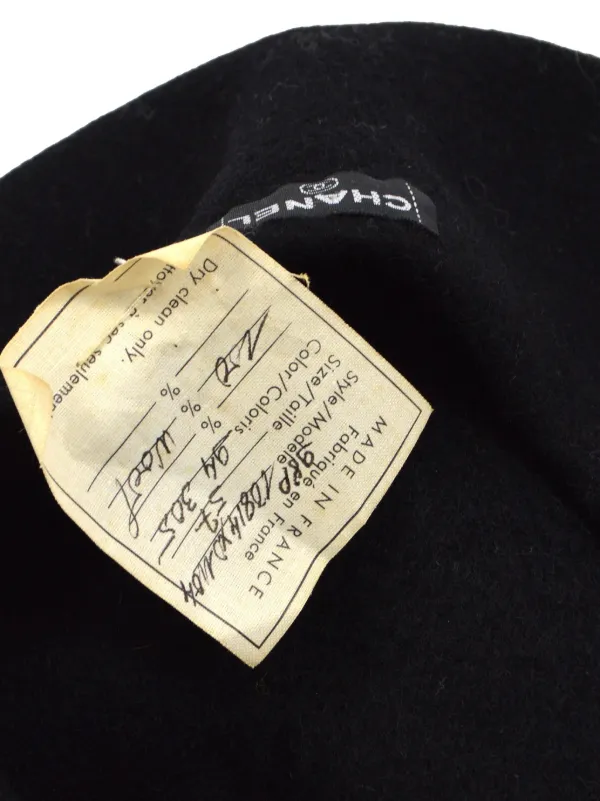 CHANEL
MADE IN FRANCE
Fabriqué en France
Style/Modèle 98P
Size/Taille 57
Color/Coloris 94305
100 % WOOL
%
%
Dry clean only.
ttoyer à sec seulemen